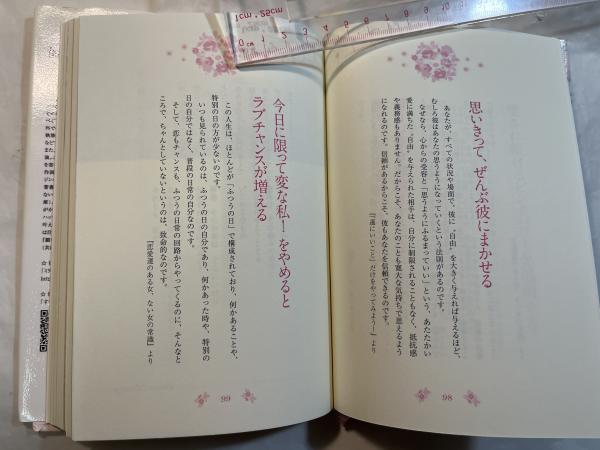 思いきって、ぜんぶ彼にまかせる
あなたが、すべての状況や場面で、彼に〝自由〟を大きく与えれば与えるほど、
むしろ彼はあなたの思うようになっていくという法則があるのです。
なぜなら、心からの受容と「思うようにふるまっていい」という、あたたかい
愛に満ちた〝自由〟を与えられた相手は、自分に制限されることもなく、抵抗感
や義務感もありません。だからこそ、あなたのことも寛大な気持ちで思えるよう
になれるのです。信頼があるからこそ、彼もあなたを信頼できるのです。
『運にいいこと』だけをやってみよう!』より
98
今日に限って変な私!をやめると
ラブチャンスが増える
この人生は、ほとんどが「ふつうの日」で構成されており、何かあることや、
特別の日の方が少ないのです。
いつも見られているのは、ふつうの日の自分であり、何かあった時や、特別の
日の自分ではなく、普段の日常の自分なのです。
そして、恋もチャンスも、ふつうの日常の回路からやってくるのに、そんなと
ころで、ちゃんとしていないというのは、致命的なのです。
『恋愛運のある女、ない女の常識』より
99
1cm .25cm
0 1 2 3 4 5 6 7 8 9 10